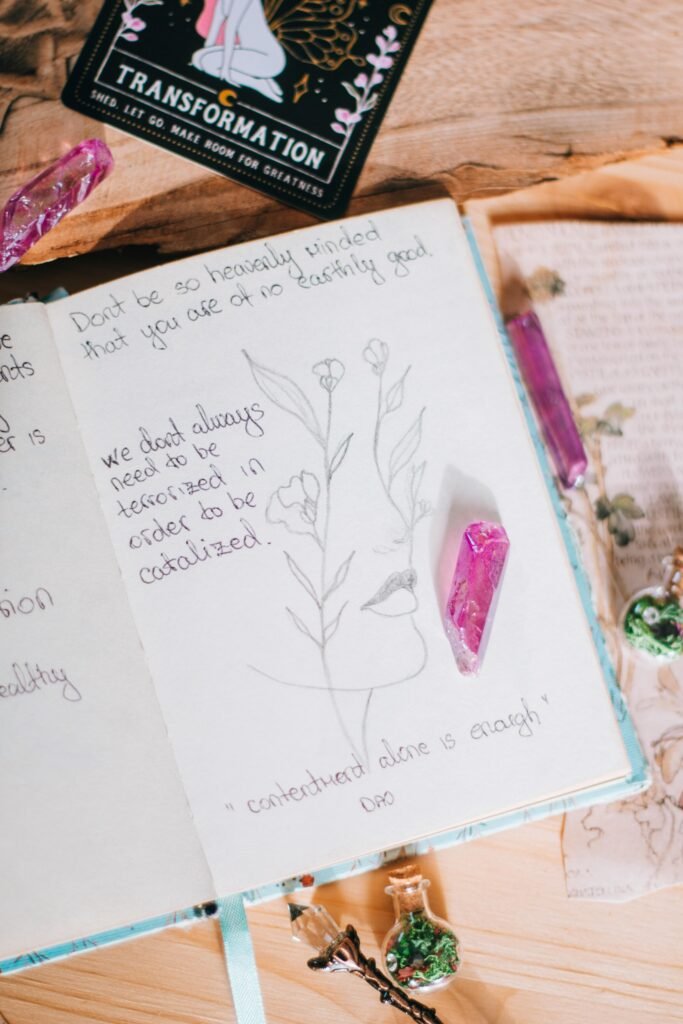 TRANSFORMATION
SHED. LET GO. MAKE ROOM FOR GREATNESS
Dont be so heavenly minded
that you are of no earthly good.
we dont always
need to be
terrorized in
order to be
catalized.
"contentment alone is enough"
DAO
is
ealthy